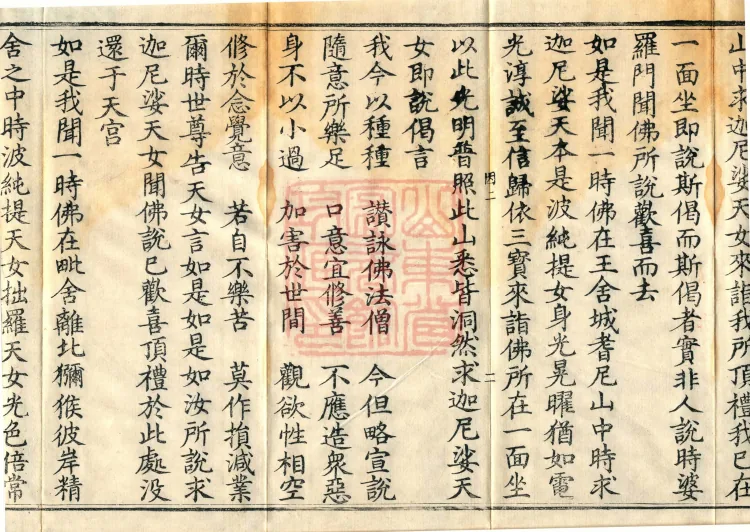 山中求迦尼娑天女來詣我所頂禮我已在
一面坐即說斯偈而斯偈者實非人說時婆
羅門聞佛所說歡喜而去
如是我聞一時佛在王舍城耆尼山中時求
迦尼娑天本是波純提女身光晃曜猶如電
光淳誠至信歸依三寶來詣佛所在一面坐
以此光明普照此山悉皆洞然求迦尼娑天
女即說偈言
丙二
二
我今以種種 讚詠佛法僧 今但略宣說
隨意所樂足 口意宜修善 不應造衆惡
身不以小過 加害於世間 觀欲性相空
修於念覺意 若自不樂苦 莫作損減業
爾時世尊告天女言如是如是如汝所說求
迦尼娑天女聞佛說已歡喜頂禮於此處没
還于天宫
如是我聞一時佛在毗舍離北獼猴彼岸精
舍之中時波純提天女拙羅天女光色倍常